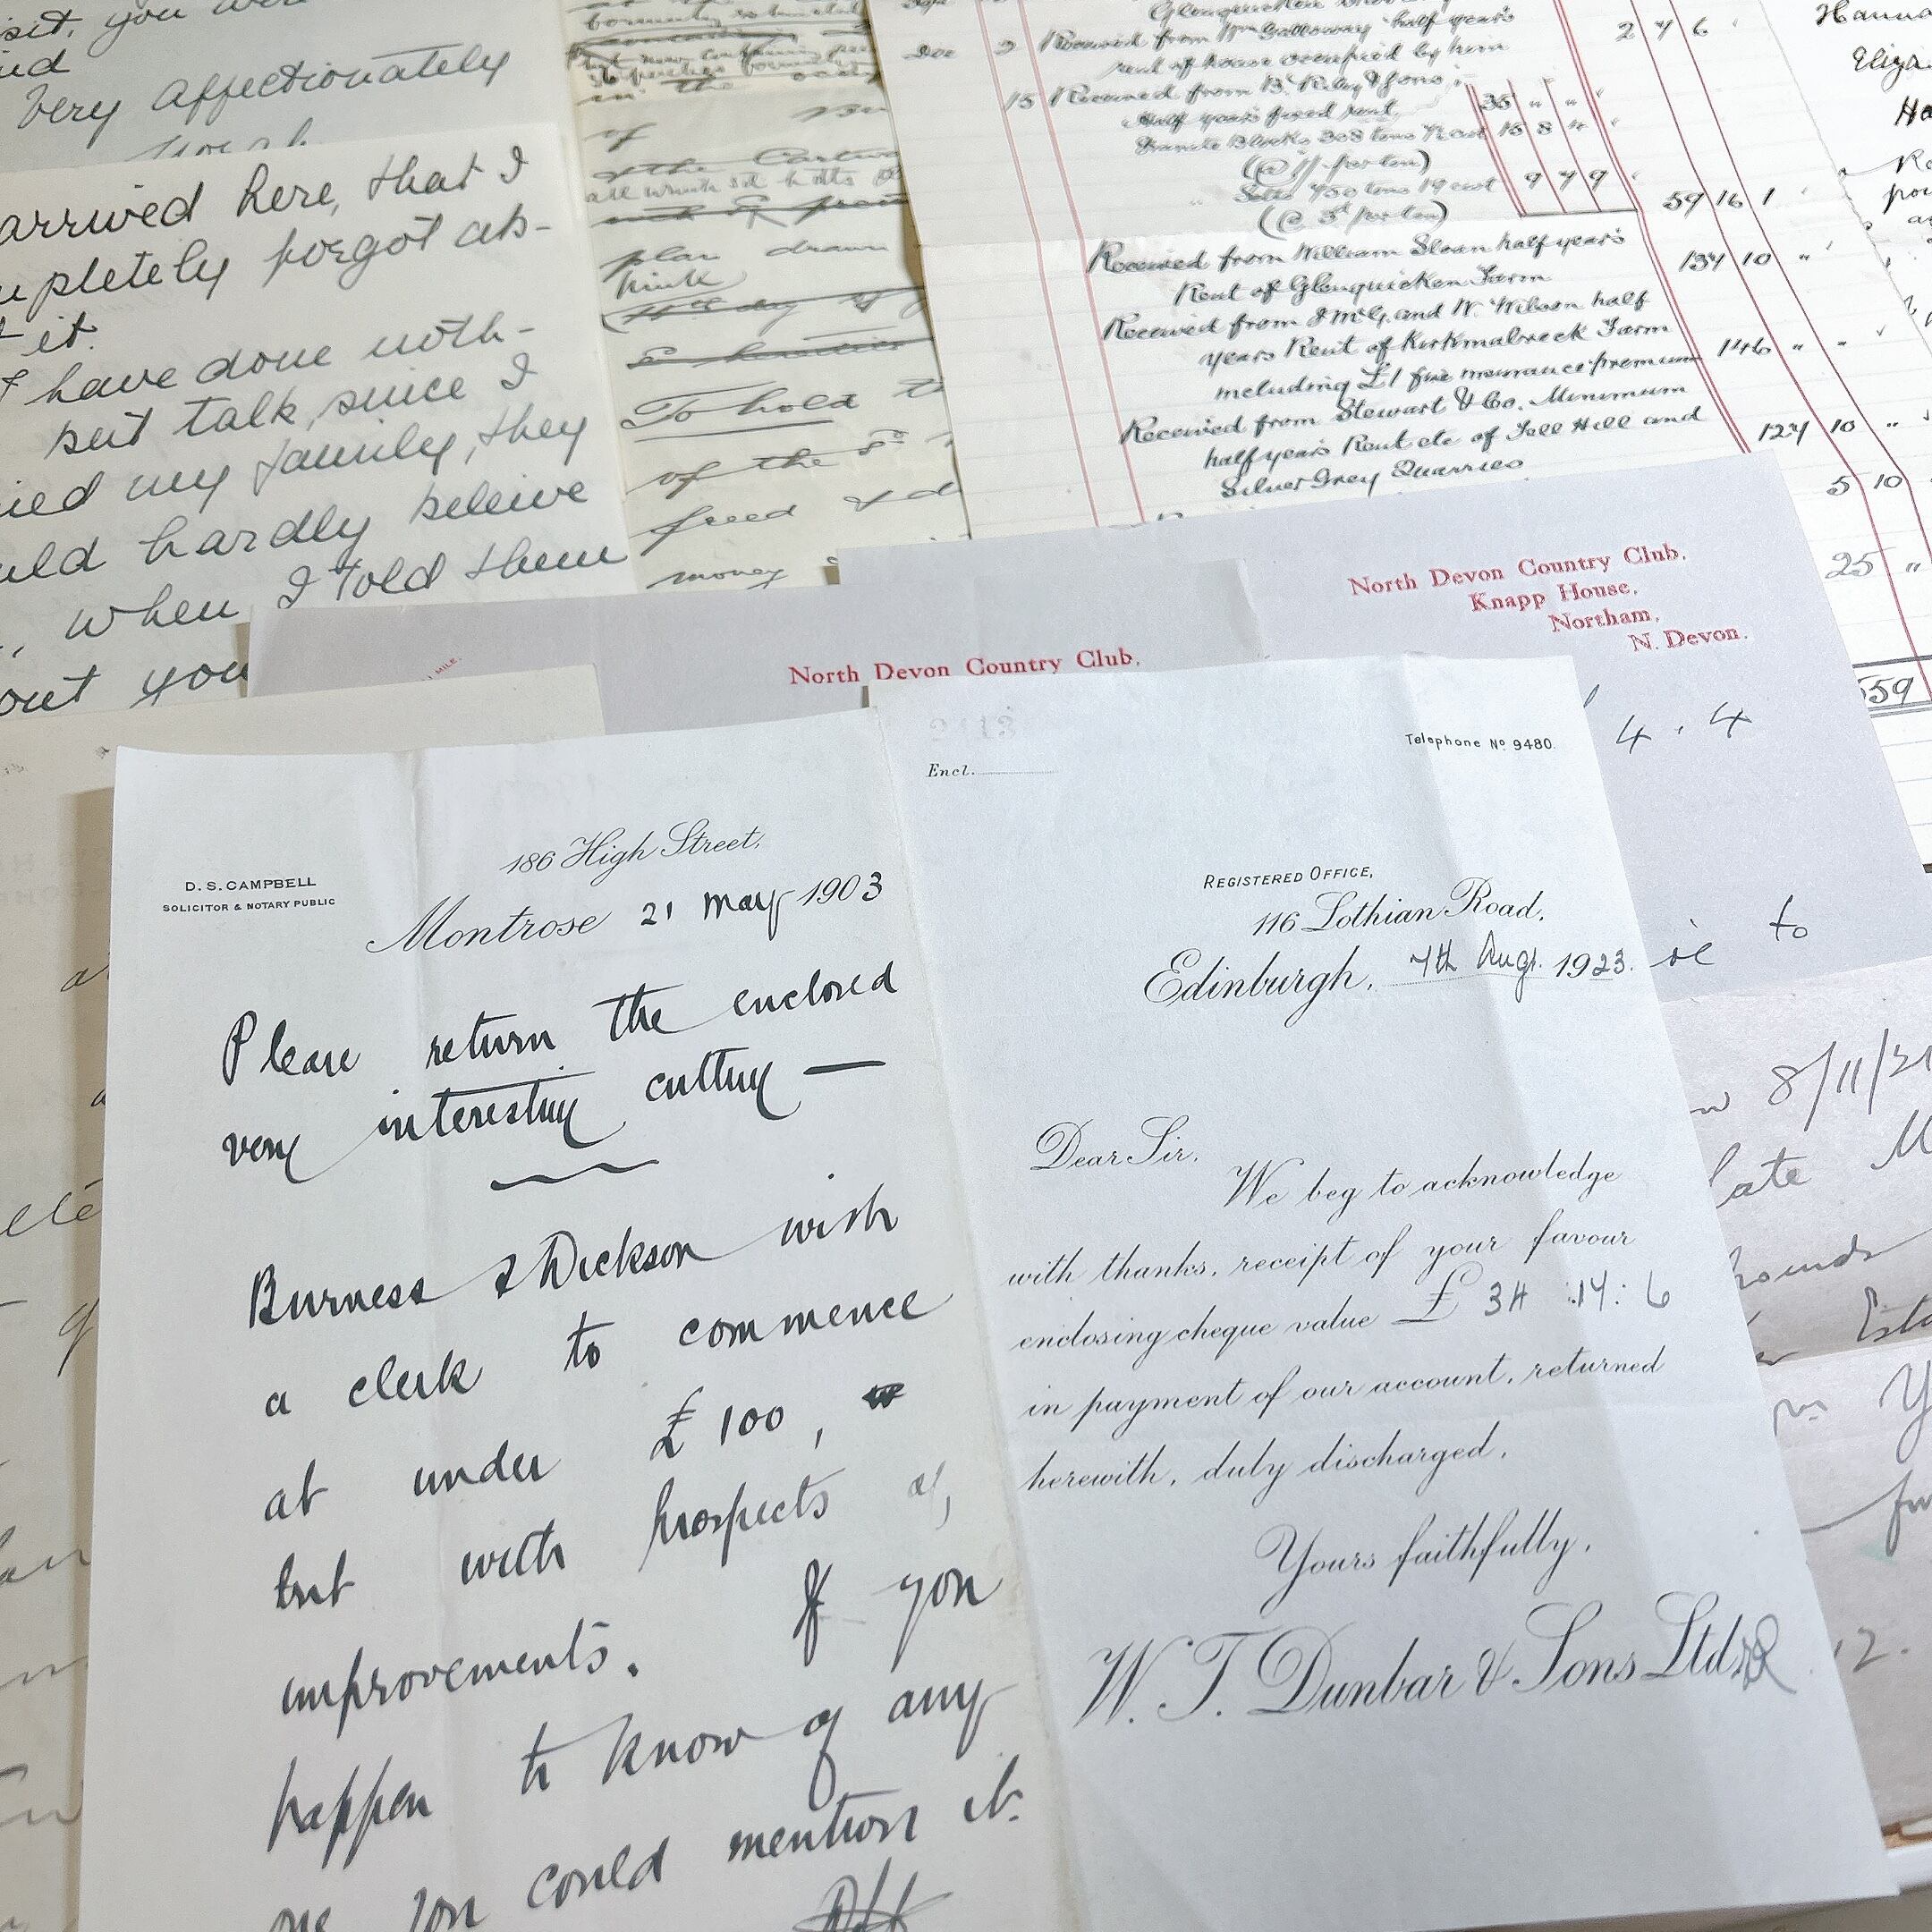 sit, you were
Very affectionately
arrived here, that I
forgot ab-
it.
I have done noth-
but talk, since I
my family, they
hardly beleive
when I told them
out you
in the
of
plan drawn
To hold
of the sd
freed & d
money
Received from Wm Galloway half years
rent of house occupied by him
2 7 6
Dec
15 Received from B. Riley & Sons
Half years fixed rent 35 " "
Granite Blocks 308 tons 16 8 "
(@ 1/- per ton)
" Setts 750 tons 19 cwt 9 7 9
(@ 3d per ton)
59 16 1
Received from William Sloan half years
Rent of Glenquicken Farm
134 10 "
Received from J McG. and W. Wilson half
years Rent of Kirkmabreck Farm
including £1 fire insurance premium
146 " "
Received from Stewart & Co. Minimum
half years Rent etc of Fell Hill and
Silver Grey Quarries
127 10 "
5 10
25 "
559
Hanna
Eliza
North Devon Country Club,
Knapp House,
Northam,
N. Devon.
4 . 4
to
North Devon Country Club,
MILE.
D. S. CAMPBELL
SOLICITOR & NOTARY PUBLIC
186 High Street,
Montrose 21 May 1903
Please return the enclosed
very interesting cutting —
Burness & Dickson wish
a clerk to commence
at under £100,
but with prospects of,
improvements. If you
happen to know of any
one you could mention it.
Encl.
Telephone No 9480.
REGISTERED OFFICE,
116 Lothian Road,
Edinburgh, 7th Aug. 1923.
Dear Sir,
We beg to acknowledge
with thanks, receipt of your favour
enclosing cheque value £ 34 : 14 : 6
in payment of our account, returned
herewith, duly discharged.
Yours faithfully,
W. T. Dunbar & Sons Ltd
8/11/21
late
12.